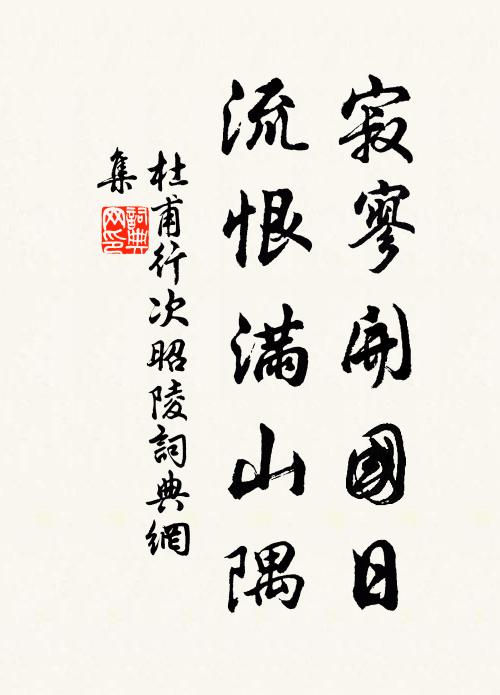 寂寥開國日
流恨滿山隅
杜甫行次昭陵詞典網
集
詞典网印